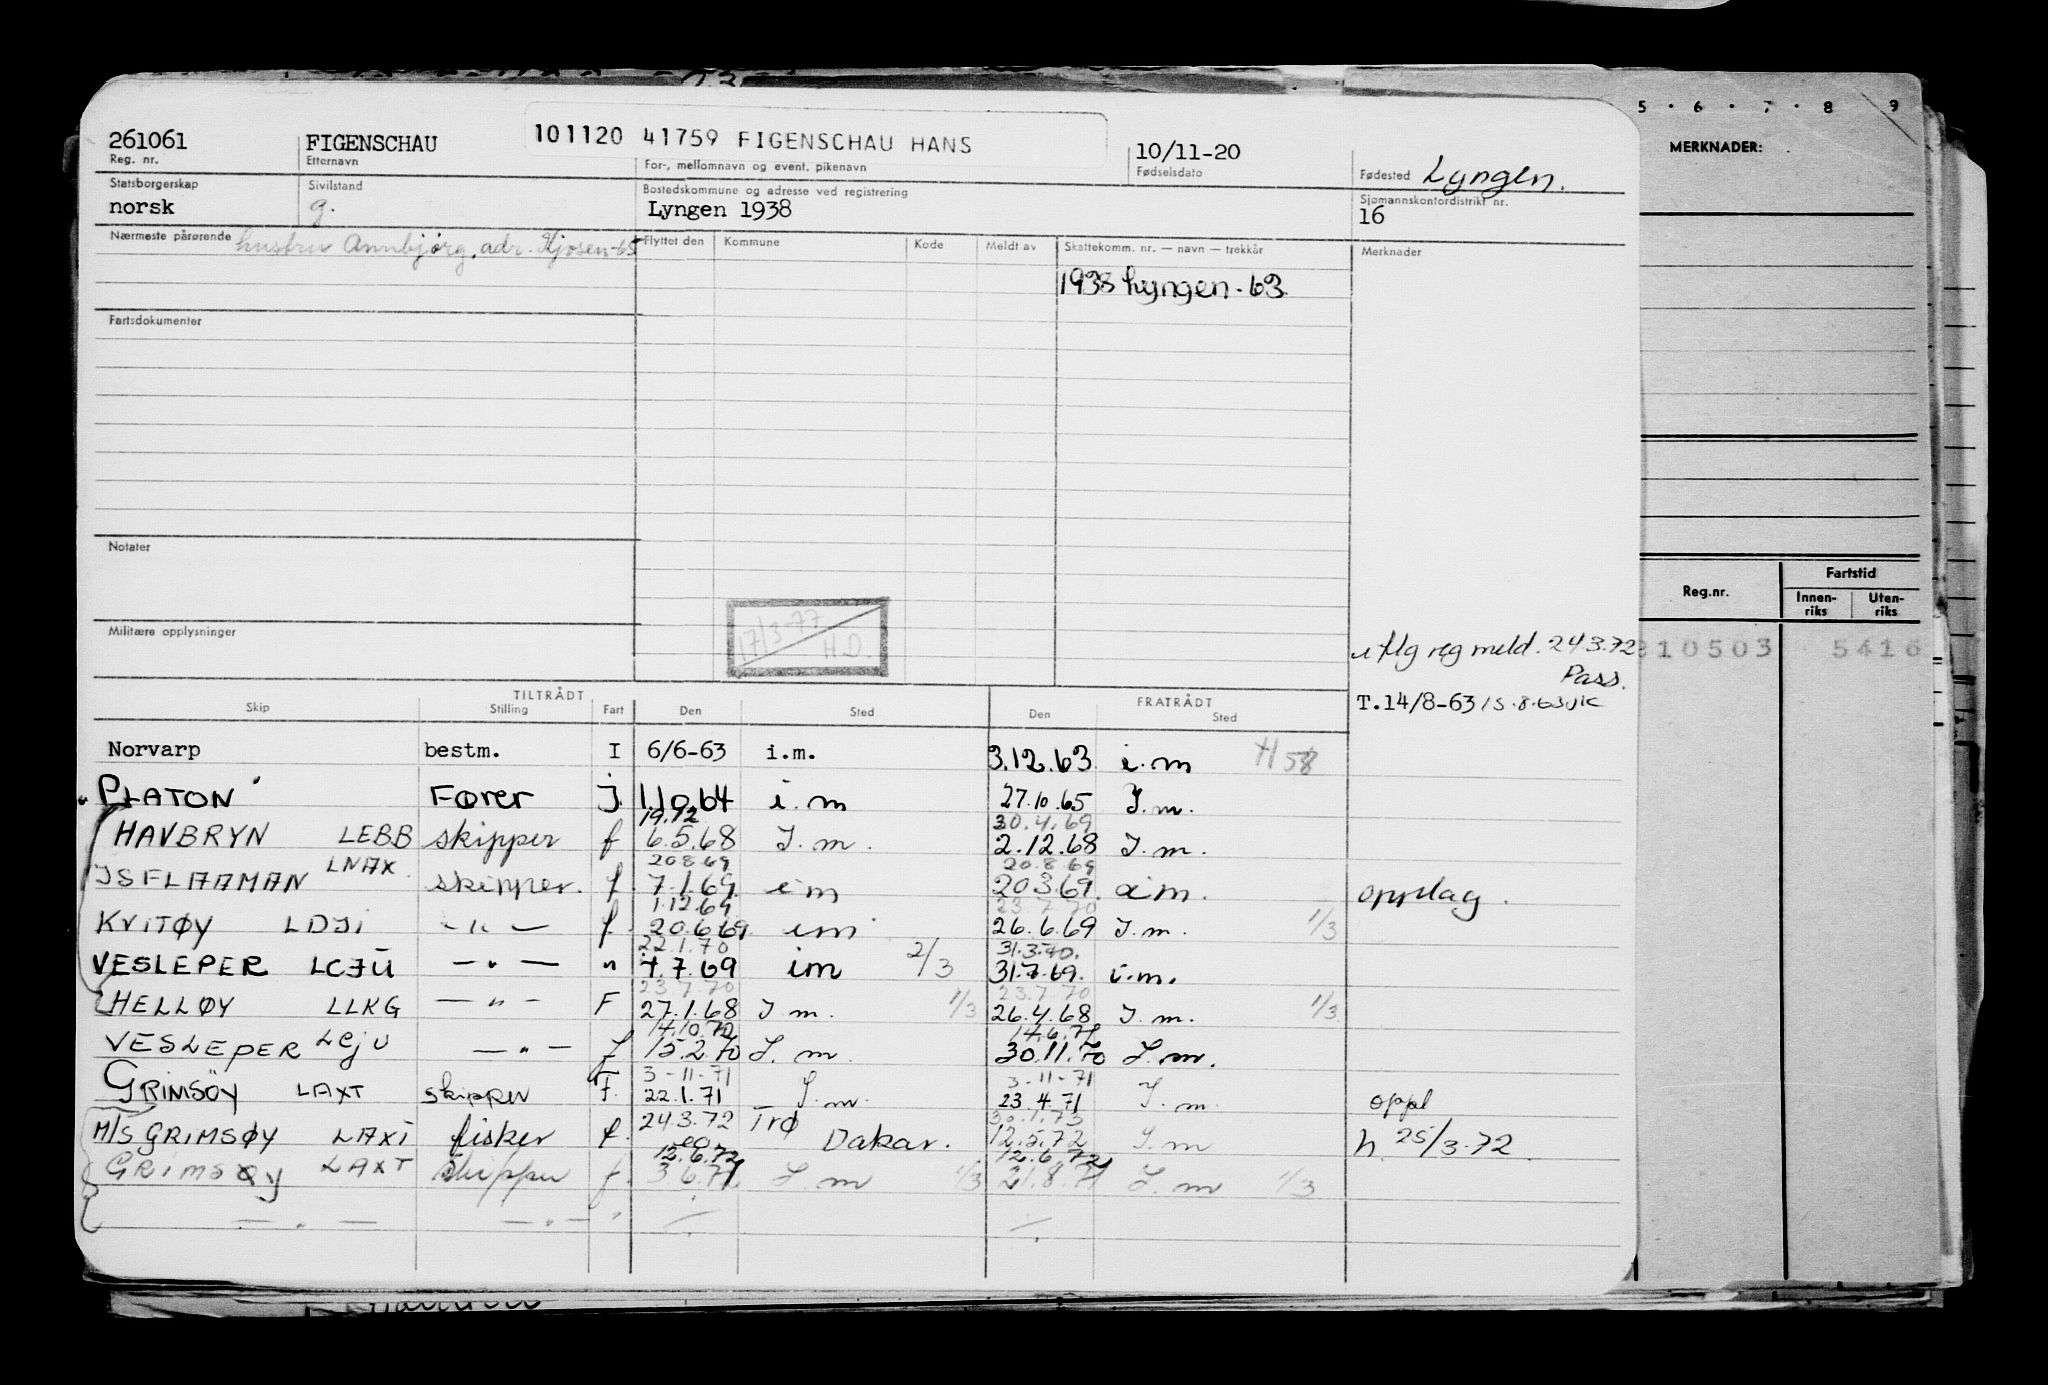 5 · 6 · 7 · 8 9
MERKNADER:
261061 FIGENSCHAU 101120 41759 FIGENSCHAU HANS 10/11-20
Reg. nr. Etternavn For-, mellomnavn og event. pikenavn Fødselsdato Fødested Lyngen.
Statsborgerskap Sivilstand Bostedskommune og adresse ved registrering Sjømannskontordistrikt nr.
norsk g. Lyngen 1938 16
Nærmeste pårørende hustru Annbjørg, adr. Kjosen-65 Flyttet den Kommune Kode Meldt av Skattekomm. nr. — navn — trekkår Merknader
1938 Lyngen - 63
Fartsdokumenter
Notater
Reg.nr. Fartstid
Innen-riks Uten-riks
17/3-77 H.D.
Militære opplysninger
reg meld. 24.3.72
10503 5416
Pass.
TILTRÅDT FRATRÅDT
Skip Stilling Fart Den Sted Den Sted T.14/8-63
Norvarp bestm. I 6/6-63 i.m. 3.12.63 i.m H 58
PLATON Fører j. 1.10.64 i.m 27.10.65 J.m.
19.72 30.4.69
HAVBRYN LEBB skipper f 6.5.68 J.m. 2.12.68 J.m.
20.8.69 20.8.69
ISFLAAMAN LNAX skipper. f. 7.1.69 i m 20.3.69. i.m. opptlag.
1.12.69 23.7.70
KVITØY LDJi — " — f. 20.6.69 im 26.6.69 J.m. 1/3
22.1.70 31.3.70.
VESLEPER LCJU — " — " 7.7.69 im 2/3 31.7.69. i.m.
23.7.70 23.7.70
HELLØY LLKG — " — F 27.1.68 J.m. 1/3 26.4.68 J.m. 1/3
14.10.72
VESLEPER LCJU — " — f 15.2.70 J.m. 30.11.70 J.m.
3-11-71 3-11-71
GRIMSÖY LAXT skipper F. 22.1.71 J.m. 23.4.71 J.m. oppl
30.1.73
M/S GRIMSØY LAXT fisker f. 24.3.72 Trø Dakar. 12.5.72 J.m h. 25/3.72
12.6.72 12.6.72
GRIMSØY LAXT Skipper f. 3.6.71 J.m 1/3 21.8.71 J.m 1/3
— " — — " — "